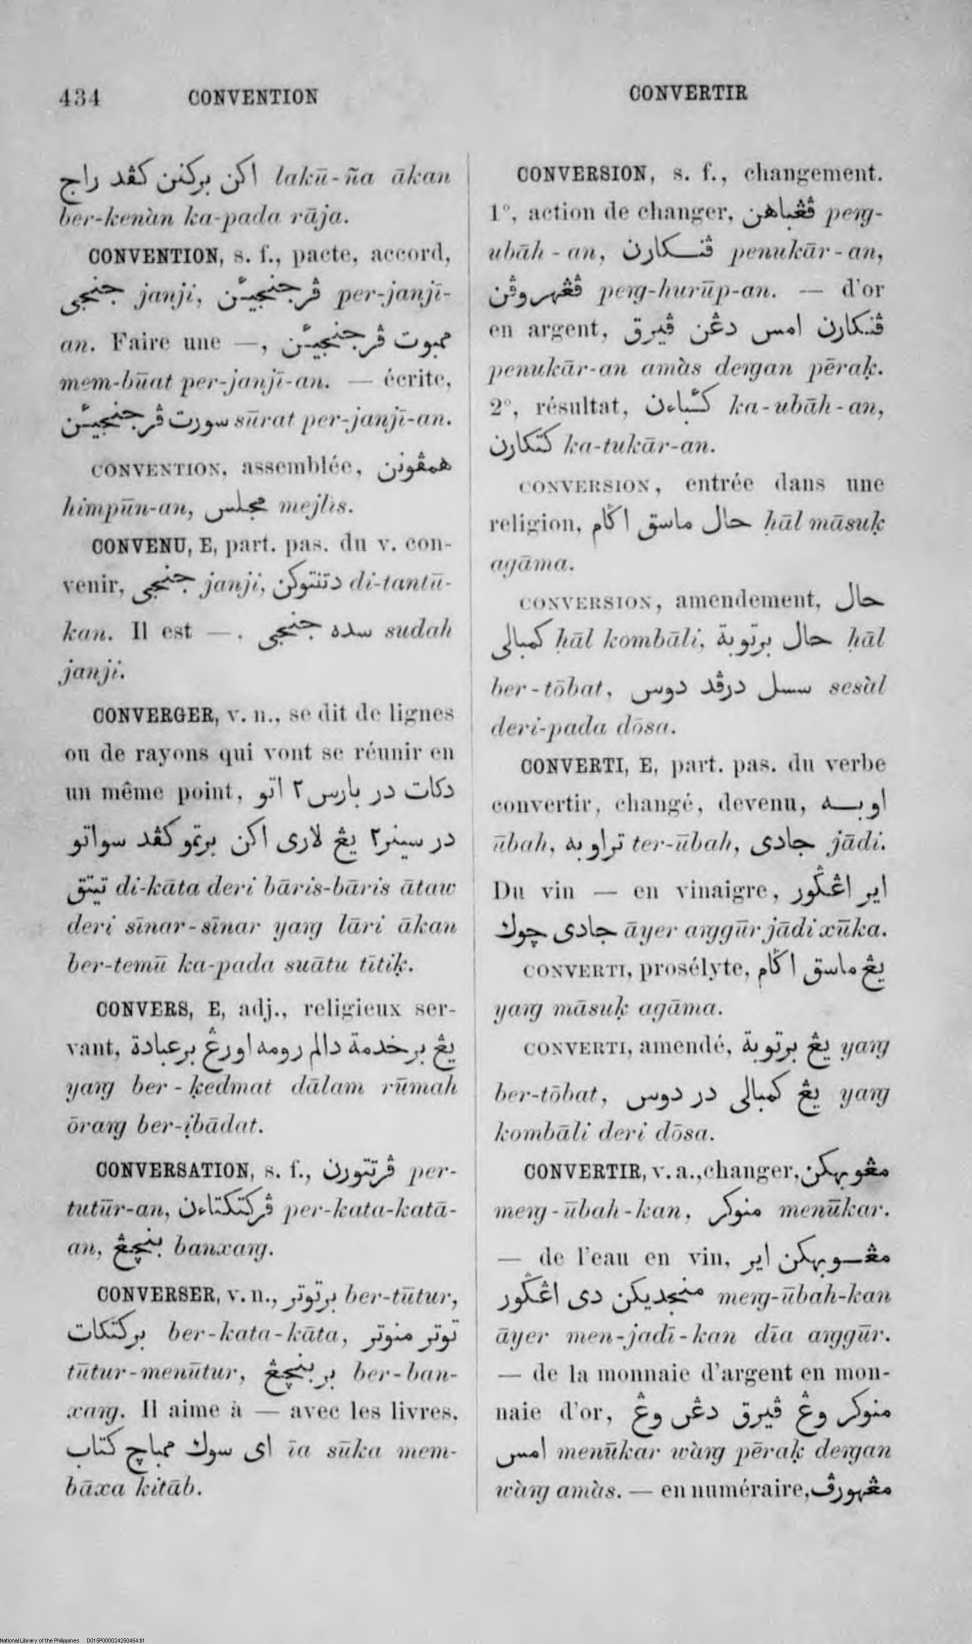 434 CONVENTION CONVERTIR
اکن برکنن کڤد راج lakū-ña ākan
ber-kenàn ka-pada rāja.
CONVENTION, s. f., pacte, accord,
جنجی janji, ڤرجنجيئن per-janjī-
an. Faire une —, ممبوت ڤرجنجيئن
mem-būat per-janjī-an. — écrite,
سورت ڤرجنجيئن sūrat per-janjī-an.
CONVENTION, assemblée, همڤونن
himpūn-an, مجلس mejlis.
CONVENU, E, part. pas. du v. con-
venir, جنجی janji, دتنتوکن di-tantū-
kan. Il est —, سده جنجی sudah
janji.
CONVERGER, v. n., se dit de lignes
ou de rayons qui vont se réunir en
un même point, دکات در بارس٢ اتو
در سينر٢ يڠ لاری اکن برتمو کڤد سواتو
تيتق di-kāta deri bāris-bāris ātaw
deri sīnar-sīnar yaŋ lāri ākan
ber-temū ka-pada suātu tītiḳ.
CONVERS, E, adj., religieux ser-
vant, يڠ برخدمة دالم رومه اورڠ برعبادة
yaŋ ber-ḳedmat dālam rūmah
ōraŋ ber-ịbādat.
CONVERSATION, s. f., ڤرتتورن per-
tutūr-an, ڤرکتکتاءن per-kata-katā-
an, بنچڠ banxaŋ.
CONVERSER, v. n., برتوتر ber-tūtur,
برکتکات ber-kata-kāta, توتر منوتر
tūtur-menūtur, بربنچڠ ber-ban-
xaŋ. Il aime à — avec les livres,
ای سوك ممباچ کتاب īa sūka mem-
bāxa kitāb.
CONVERSION, s. f., changement.
1°, action de changer, ڤڠباهن peŋ-
ubāh-an, ڤنکارن penukār-an,
ڤڠهروڤن peŋ-hurūp-an. — d'or
en argent, ڤنکارن امس دڠن ڤيرق
penukār-an amàs deŋan pēraḳ.
2°, résultat, کٔباءن ka-ubāh-an,
کتکارن ka-tukār-an.
CONVERSION, entrée dans une
religion, حال ماسق اݢام ḥāl māsuḳ
agāma.
CONVERSION, amendement, حال
کمبالی ḥāl kombāli, حال برتوبة ḥāl
ber-tōbat, سسل درڤد دوس sesàl
deri-pada dōsa.
CONVERTI, E, part. pas. du verbe
convertir, changé, devenu, اوبه
ūbah, تراوبه ter-ūbah, جادی jādi.
Du vin — en vinaigre, اير اڠݢور
جادی چوك āyer aŋgūr jādi xūka.
CONVERTI, prosélyte, يڠ ماسق اݢام
yaŋ māsuḳ agāma.
CONVERTI, amendé, يڠ برتوبة yaŋ
ber-tōbat, يڠ کمبالی در دوس yaŋ
kombāli deri dōsa.
CONVERTIR, v. a., changer, مڠوبهکن
meŋ-ūbah-kan, منوکر menūkar.
— de l'eau en vin, مڠوبهکن اير
منجديکن دی اڠݢور meŋ-ūbah-kan
āyer men-jadī-kan dīa aŋgūr.
— de la monnaie d'argent en mon-
naie d'or, منوکر وڠ ڤيرق دڠن وڠ
امس menūkar wàŋ pēraḳ deŋan
wàŋ amàs. — en numéraire, مڠهورڤ
National Library of the Philippines